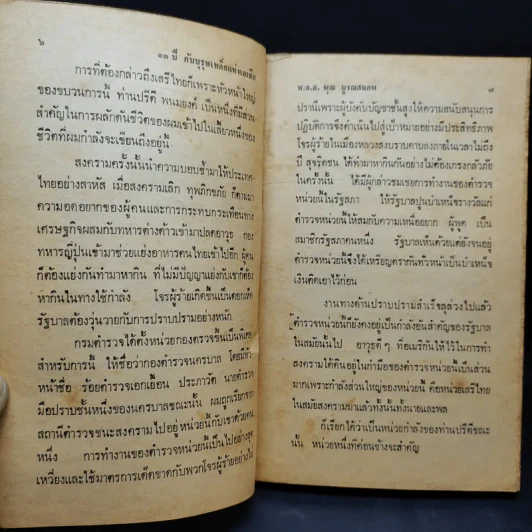 ๖
๑๓ ปี กับบุรุษเหล็กแห่งเอเซีย
การที่ต้องกล่าวถึงเสรีไทยก็เพราะหัวหน้าใหญ่
ของขบวนการนี้ ท่านปรีดี พนมยงค์ เป็นหนึ่งที่มีส่วน
สำคัญในการผลักดันชีวิตของผมเข้าไปในเสี้ยวหนึ่งของ
ชีวิตที่ผมกำลังจะเขียนถึงอยู่นี้
สงครามครั้งนั้นนำความบอบช้ำมาให้ประเทศ
ไทยอย่างสาหัส เมื่อสงครามเลิก ทุพภิกขภัย ก็ตามมา
ความอดอยากของผู้คนและการกระทบกระเทือนทาง
เศรษฐกิจผสมกับทหารต่างด้าวเข้ามาปลดอาวุธ กอง
ทหารญี่ปุ่นเข้ามาช่วยแย่งอาหารคนไทยเข้าไปอีก ผู้คน
ก็ต้องแย่งกันทำมาหากิน ที่ไม่มีปัญญาแย่งกับเขาก็ต้อง
หากินในทางใช้กำลัง โจรผู้ร้ายเกิดขึ้นเป็นดอกเห็ด
รัฐบาลต้องวุ่นวายกับการปราบปรามอย่างหนัก
กรมตำรวจได้ตั้งหน่วยกองตรวจขึ้นเป็นพิเศษ
สำหรับการนี้ ให้ชื่อว่ากองตำรวจนครบาล โดยมีหัว-
หน้าชื่อ ร้อยตำรวจเอกเยื้อน ประภาวัต นายตำรวจ
มือปราบชั้นหนึ่งของนครบาลขณะนั้น ผมถูกเรียกจาก
สถานีตำรวจชนะสงครามไปอยู่หน่วยนี้กับเขาด้วยคน
หนึ่ง การทำงานของตำรวจหน่วยนี้เป็นไปอย่างดุด
เหวี่ยงและใช้มาตรการเด็ดขาดกับพวกโจรผู้ร้ายอย่างไม่
พ.ต.อ. พุฒ บูรณสมภพ
๗
ปรานีเพราะผู้บังคับบัญชาชั้นสูงให้ความสนับสนุนการ
ปฏิบัติการซึ่งดำเนินไปสู่เป้าหมายอย่างมีประสิทธิภาพ
โจรผู้ร้ายในเมืองหลวงสงบราบคาบลงภายในเวลาไม่ถึง
ปี สุจริตชน ได้ทำมาหากินกันอย่างไม่ต้องเกรงกลัวภัย
ในครั้งนั้น ได้มีผู้กล่าวชมเชยการทำงานของตำรวจ
หน่วยนี้ในรัฐสภา ให้รัฐบาลปูนบำเหน็จรางวัลแก่
ตำรวจหน่วยนี้ให้สมกับความเหนื่อยยาก ผู้พูด เป็น
สมาชิกรัฐสภาคนหนึ่ง รัฐบาลเห็นด้วยแต่ยังจนอยู่
ตำรวจหน่วยนี้จึงได้เหรียญตรากันทั่วหน้าเป็นบำเหน็จ
เงินติดเอาไว้ก่อน
งานทางด้านปราบปรามสำเร็จลุล่วงไปแล้ว
ตำรวจหน่วยนี้ก็ยังคงอยู่เป็นกำลังอันสำคัญของรัฐบาล
ในสมัยนั้นไป อาวุธดีๆ ที่อเมริกันให้ไว้ในการทำ
สงครามใต้ดินอยู่ในกำมือของตำรวจหน่วยนี้เป็นส่วน
มากเพราะกำลังส่วนใหญ่ของหน่วยนี้ คือหน่วยเสรีไทย
ในสมัยสงครามมาแล้วทั้งนั้นทั้งนายและพล
ก็เรียกได้ว่าเป็นหน่วยกำลังของท่านปรีดีขณะ
นั้น หน่วยหนึ่งที่ค่อนข้างจะสำคัญ